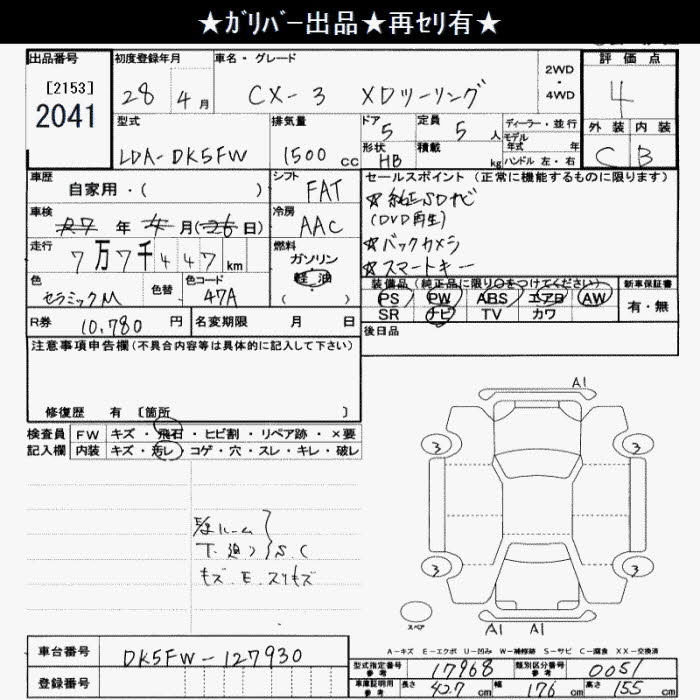 ★ｶﾞﾘﾊﾞｰ出品★再ｾﾘ有★
出品番号
[2153]
2041
初度登録年月
28年4月
車名・グレード
CX-3 XDツーリング
2WD
・
4WD
評価点
4
外装 内装
C B
型式
LDA-DK5FW
排気量
1500 cc
ドア
5
定員
5人
形状
HB
積載
kg
ディーラー・並行
モデル
年式 年
ハンドル 左・右
車歴
自家用・( )
シフト
FAT
車検
R7年4月(26日)
冷房
AAC
走行
7万7千447km
燃料
ガソリン
軽油
( )
色
セラミックM
色替
色コード
47A
R券
10,780円
名変期限 月 日
セールスポイント(正常に機能するものに限ります)
☆純正SDナビ
(DVD再生)
☆バックカメラ
☆スマートキー
装備品(純正品に限り○をつけてください)
PS PW ABS エアB AW
SR ナビ TV カワ
新車保証書
有・無
後日品
注意事項申告欄(不具合内容等は具体的に記入して下さい)
修復歴 有 〔箇所 〕
検査員
記入欄
FW キズ・飛石・ヒビ割・リペア跡・×要
内装 キズ・汚レ・コゲ・穴・スレ・キレ・破レ
ルーム
S C
キズ
A1
3
3
3
3
スペア
A1 A1
A－キズ E－エクボ U－凹み W－補修跡 S－サビ C－腐食 XX－交換済
車台番号
DK5FW-127930
登録番号
型式指定番号
参考
17968
類別区分番号
参考
0051
車庫証明用
参考
長さ 427cm
幅 176cm
高さ 155cm